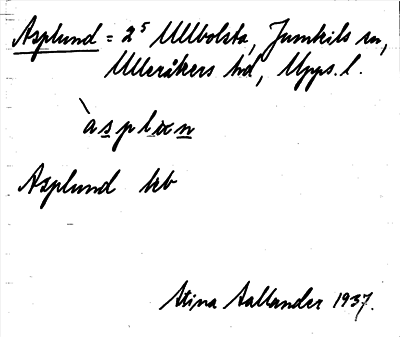 Asplund = 2⁵ Ullbolsta, Jumkils sn,
Ulleråkers hd, Upps. l.
`asplœn
Asplund lib
Stina Sallander 1937.